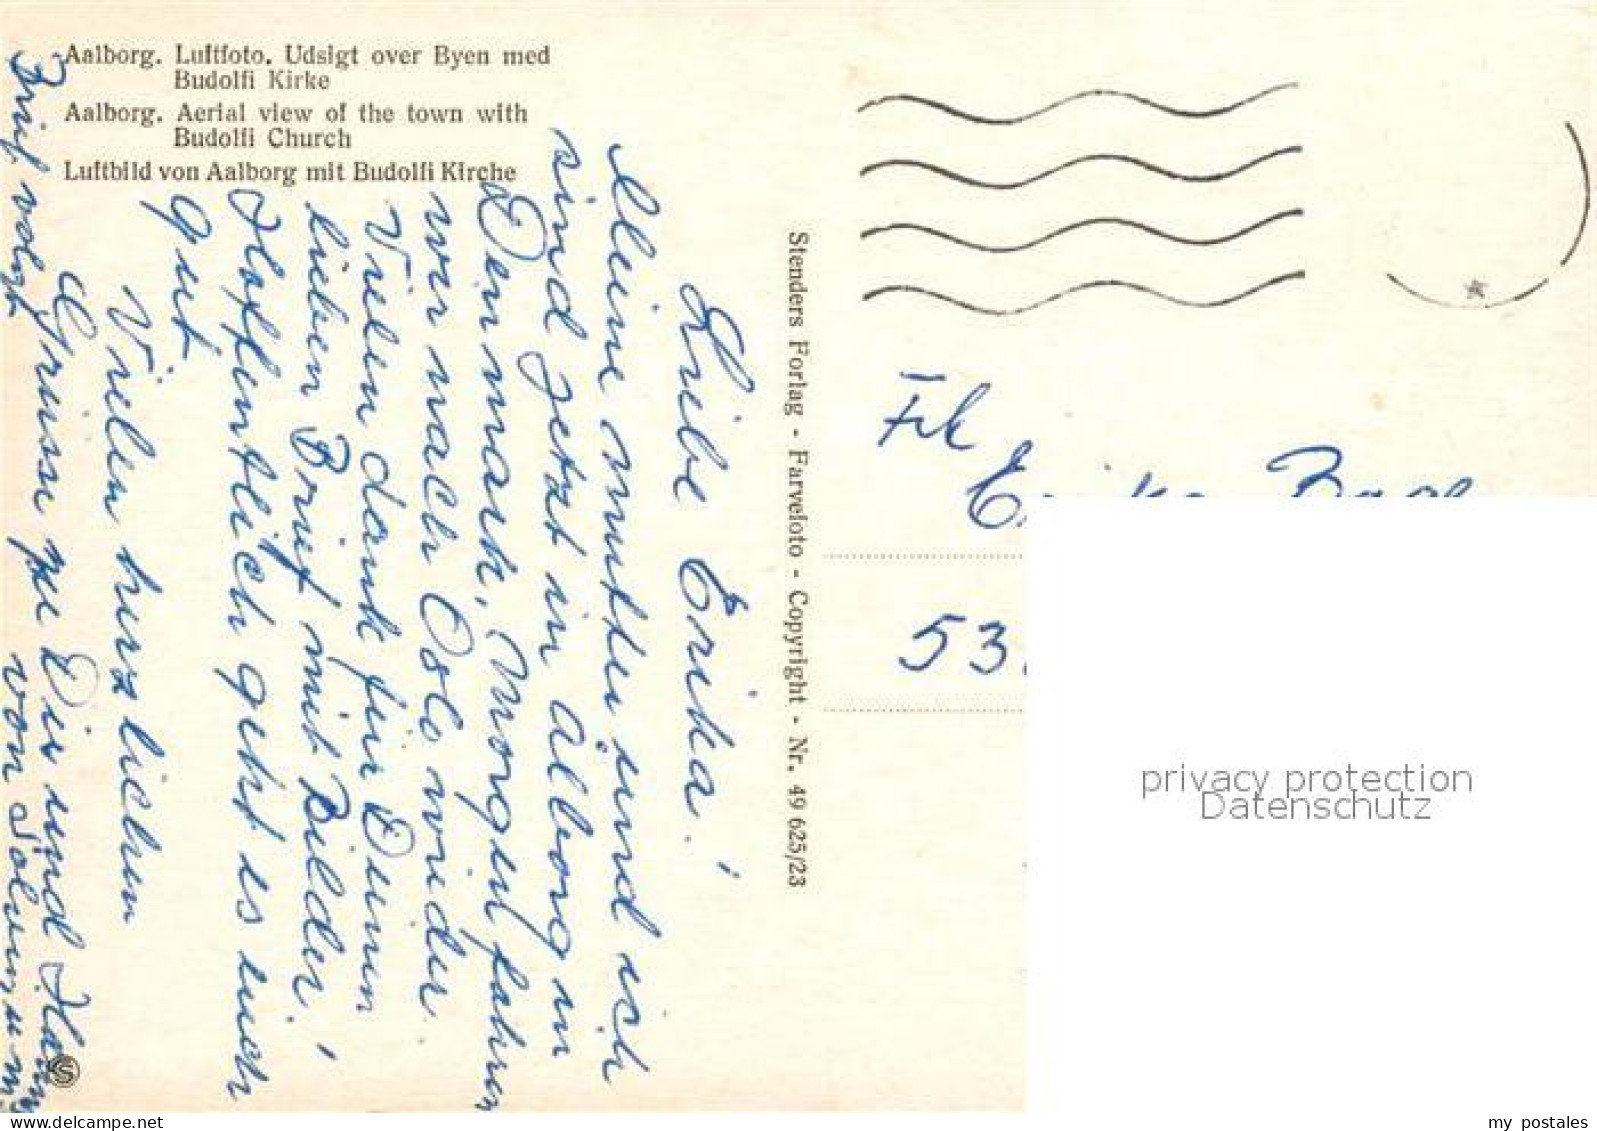 Aalborg. Luftfoto. Udsigt over Byen med
Budolfi Kirke
Aalborg. Aerial view of the town with
Budolfi Church
Luftbild von Aalborg mit Budolfi Kirche
Liebe Erika!
Meine mutter und ich
sind jetzt in Ålborg in
Denmark. Morgen fahren
wir nach Oslo wieder.
Vielen dank für Deinen
lieben Brief mit Bilder!
Hoffentlich geht es euch
gut.
Vielen herzlichen
Grüsse zu Dir und
von
Brief volgt
Stenders Forlag - Farvefoto - Copyright - Nr. 49 625/23
Frk
53
privacy protection
Datenschutz
www.delcampe.net
my_postales